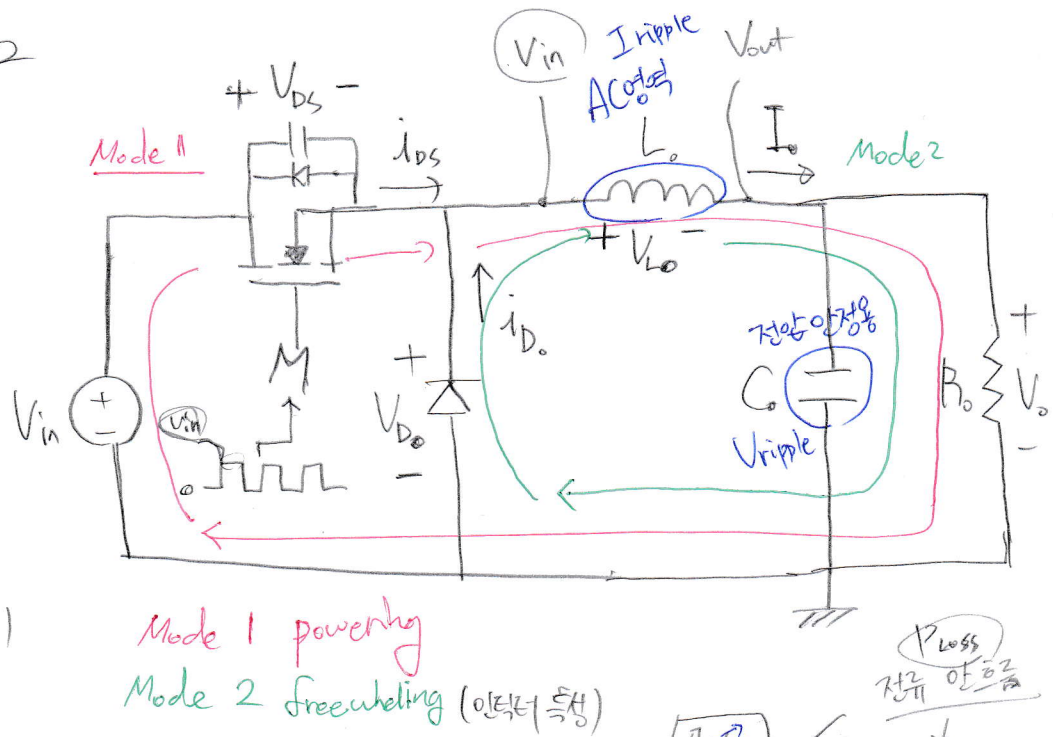 2
Vin
Iripple
AC영역
Vout
+ VDS -
Mode 1
iDS
Lo
Io
Mode 2
+ VLo -
iDo
전압안정용
+
Vin
+
-
M
Vin
o
+
VDo
-
Co
Vripple
Ro
Vo
-
Mode 1 powering
Mode 2 freewheling (인턱터 특성)
Ploss
전류 안흐름